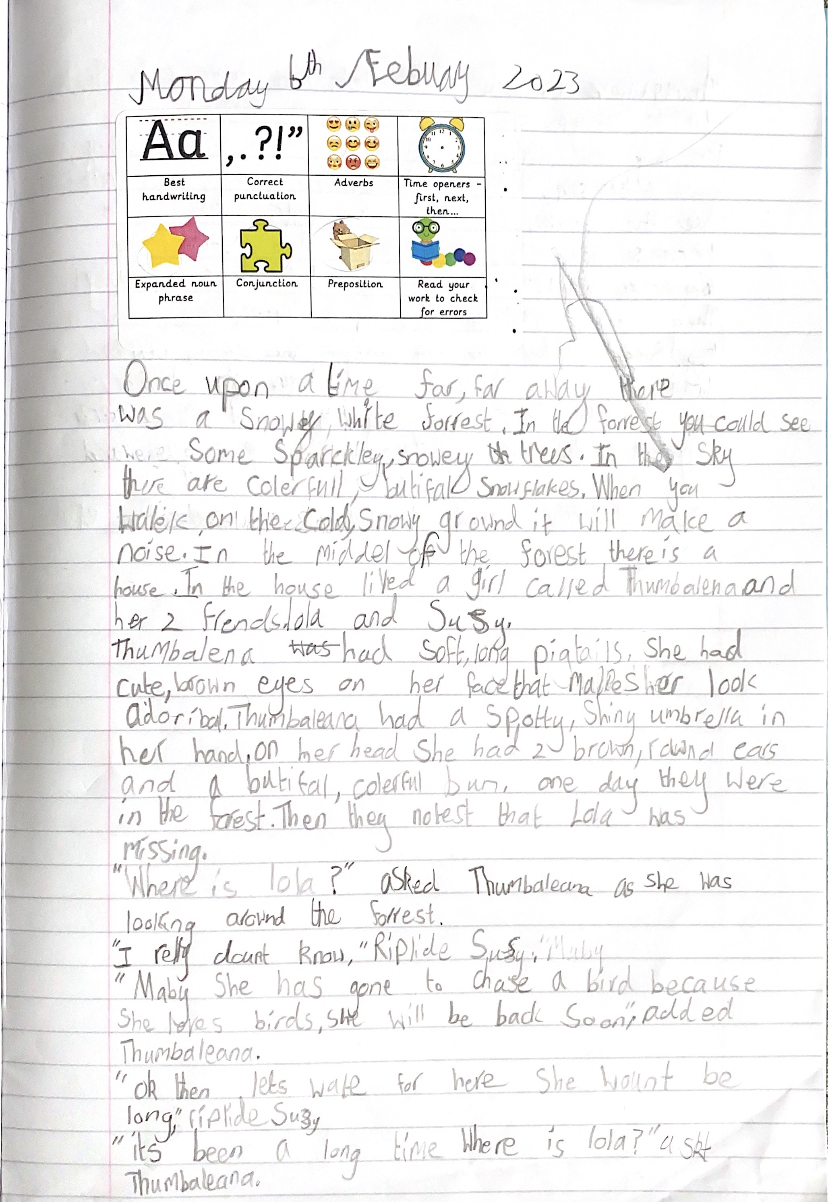 Monday 6th Febuay 2023
Aa ,.?!”
Best handwriting
Correct punctuation
Adverbs
Time openers - first, next, then...
Expanded noun phrase
Conjunction
Preposition
Read your work to check for errors
Once upon a time far, far away there
was a Snowey, white forrest. In the forrest you could see
Some Sparckley, snowey trees. In the Sky
there are colerfull, butifal Snowflakes. When you
walk on the cold, Snowy ground it will make a
noise. In the middel of the forest there is a
house. In the house lived a girl called Thumbalena and
her 2 frends lola and Suzy.
Thumbalena was had Soft, long pigtails. She had
cute, brown eyes on her face that Makes her look
adoribal. Thumbaleana had a Spotty, Shiny umbrella in
her hand, on her head She had 2 brown, round ears
and a butifal, colerful bun. one day they were
in the forest. Then they notest that Lola was
missing.
"Where is lola?" asked Thumbaleana as she was
looking around the forrest.
"I relly dount know," Riplide Suzy. "Maby
"Maby She has gone to chase a bird because
She loves birds, she will be back Soon", added
Thumbaleana.
"ok then lets wate for here She wount be
long," riplide Suzy
"its been a long time Where is lola?" askt
Thumbaleana.